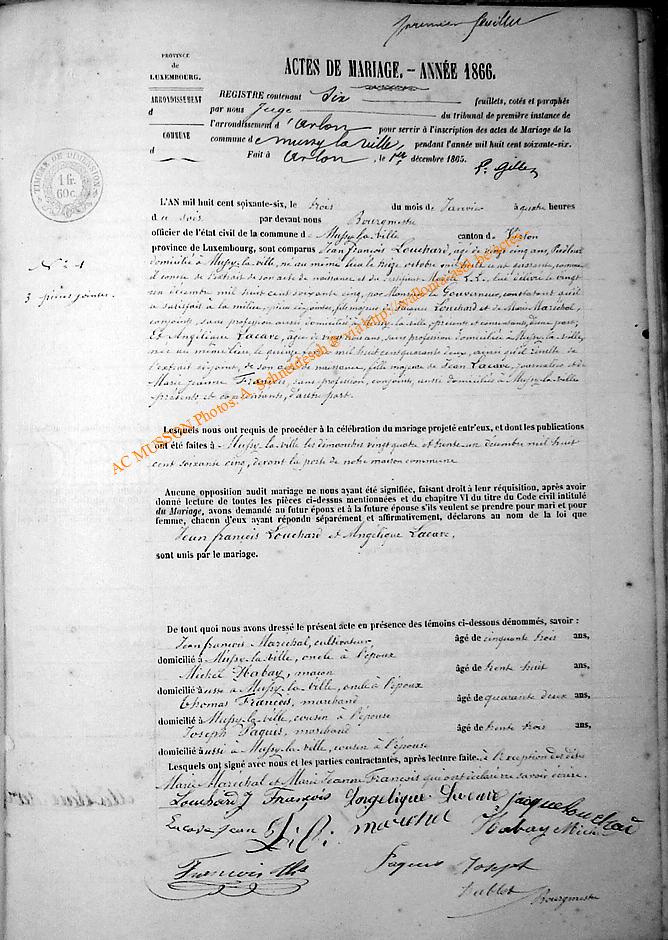 premier feuillet
PROVINCE
de
LUXEMBOURG.
ARRONDISSEMENT
d
COMMUNE
d
TIMBRE DE DIMENSION
1 fr.
60 c.
ACTES DE MARIAGE. — ANNÉE 1866.
REGISTRE contenant Six feuillets, cotés et paraphés
par nous Juge du tribunal de première instance de
l'arrondissement d'Arlon pour servir à l'inscription des actes de Mariage de la
commune d Mussy-la-ville, pendant l'année mil huit cent soixante-six.
Fait à Arlon, le 1er décembre 1865.
N° 1
3 pièces jointes.
L'AN mil huit cent soixante-six, le trois du mois de Janvier à quatre heures
du soir par devant nous Bourgmestre
officier de l'état civil de la commune de Mussy-la-ville canton de Virton
province de Luxembourg, sont comparus Jean François Louchard, âgé de vingt cinq ans,
domicilié à Mussy-la-ville, né au même lieu le seize octobre mil huit cent quarante, comme
il conste de l'extrait de son acte de naissance, et du certificat Modèle L.L. lui délivré le vingt
un décembre mil huit cent soixante cinq, par Monsieur le Gouverneur, constatant qu'il
a satisfait à la milice, pièces ci-jointes, fils majeur de Jacques Louchard et de Marie Maréchal,
conjoints, sans profession aussi domiciliés à Mussy-la-ville présents et consentants, d'une part;
Et Angélique Lacave, âgée de vingt trois ans, sans profession domiciliée à Mussy-la-ville,
née au même lieu, le quinze mil huit cent quarante deux, ainsi qu'il résulte de
l'extrait ci-joint, de son acte de naissance, fille majeure de Jean Lacave, journalier et de
Marie Jeanne François, sans profession, conjoints, aussi domiciliés à Mussy-la-ville
présents et consentants, d'autre part.
Lesquels nous ont requis de procéder à la célébration du mariage projeté entr'eux, et dont les publications
ont été faites à Mussy-la-ville les dimanches vingt quatre et trente-un décembre mil huit
cent soixante cinq, devant la porte de notre maison commune
Aucune opposition audit mariage ne nous ayant été signifiée, faisant droit à leur réquisition, après avoir
donné lecture de toutes les pièces ci-dessus mentionnées et du chapitre VI du titre du Code civil intitulé
du Mariage, avons demandé au futur époux et à la future épouse s'ils veulent se prendre pour mari et pour
femme, chacun d'eux ayant répondu séparément et affirmativement, déclarons au nom de la loi que
Jean François Louchard et Angélique Lacave,
sont unis par le mariage.
De tout quoi nous avons dressé le présent acte en présence des témoins ci-dessous dénommés, savoir :
Jean François Maréchal, cultivateur âgé de cinquante trois ans,
domicilié à Mussy-la-ville, oncle à l'époux
Michel Habay, maçon âgé de trente huit ans,
domicilié aussi à Mussy-la-ville, oncle à l'époux
Thomas François, marchand âgé de quarante deux ans,
domicilié à Mussy-la-ville, cousin à l'épouse
Joseph Paquis, marchand âgé de trente trois ans,
domicilié aussi à Mussy-la-ville, cousin à l'épouse
Lesquels ont signé avec nous et les parties contractantes, après lecture faite, à l'exception des dites
Marie Maréchal et Marie Jeanne François qui ont déclaré ne savoir écrire.
Louchard J François Angelique Lacave Jacque Louchard
Lacave Jean Habay Michel
François Ths Paquis Joseph
Bourgmestre
AC MUSSON Photos: A. Schneidesch © via http://wallonica.asbl.be/actes